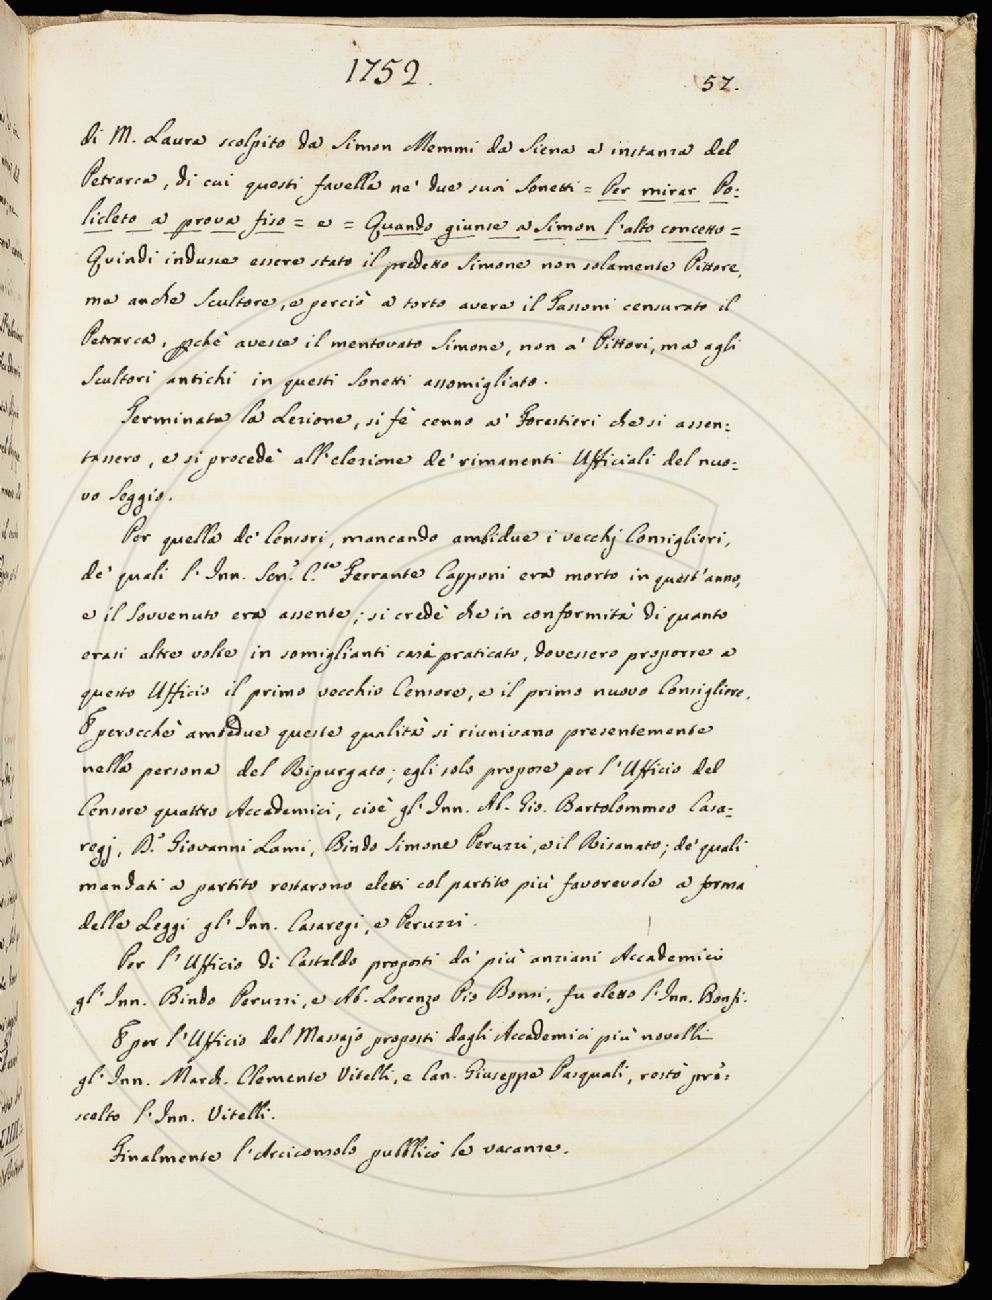 1752.
57.
di M. Laura scolpito da Simon Memmi da Siena a instanza del
Petrarca, di cui questi favella ne' due suoi Sonetti = Per mirar Po=
licleto a prova fiso = e = Quando giunse a Simon l'alto concetto =
Quindi indusse essere stato il predetto Simone non solamente Pittore,
ma anche Scultore, e perciò a torto avere il Tassoni censurato il
Petrarca, pchè avesse il mentovato Simone, non a' Pittori, ma agli
Scultori antichi in questi Sonetti assomigliato.
Terminata la Lezione, si fè cenno a' Forestieri che si assen=
tassero, e si procedè all'elezione de' rimanenti Ufficiali del nuo=
vo Seggio.
Per quella de' Censori, mancando ambidue i vecchj Consiglieri,
de' quali l'Inn. Sen.r C.te Ferrante Capponi era morto in quest'anno,
e il Sovvenuto era assente; si credè che in conformità di quanto
erasi altre volte in somiglianti casi praticato, dovessero proporre a
questo Ufficio il primo vecchio Censore, e il primo nuovo Consigliere.
E perocchè ambedue queste qualità si riunivano presentemente
nella persona del Ripurgato; egli solo propose per l'Ufficio del
Censore quattro Accademici, cioè gl'Inn. Ab. Gio. Bartolommeo Casa=
regj, D.r Giovanni Lami, Bindo Simone Peruzzi, e il Risanato; de' quali
mandati a partito restarono eletti col partito più favorevole a forma
delle Leggi gl'Inn. Casaregi, e Peruzzi.
Per l'Ufficio di Castaldo proposti da' più anziani Accademici
gl'Inn. Bindo Peruzzi, e Ab. Lorenzo Pio Bonsi, fu eletto l'Inn. Bonsi.
E per l'Ufficio del Massajo proposti dagli Accademici più novelli
gl'Inn. March. Clemente Vitelli, e Can. Giuseppe Pasquali, restò pre=
scelto l'Inn. Vitelli.
Finalmente l'Arciconsolo pubblicò le vacanze.